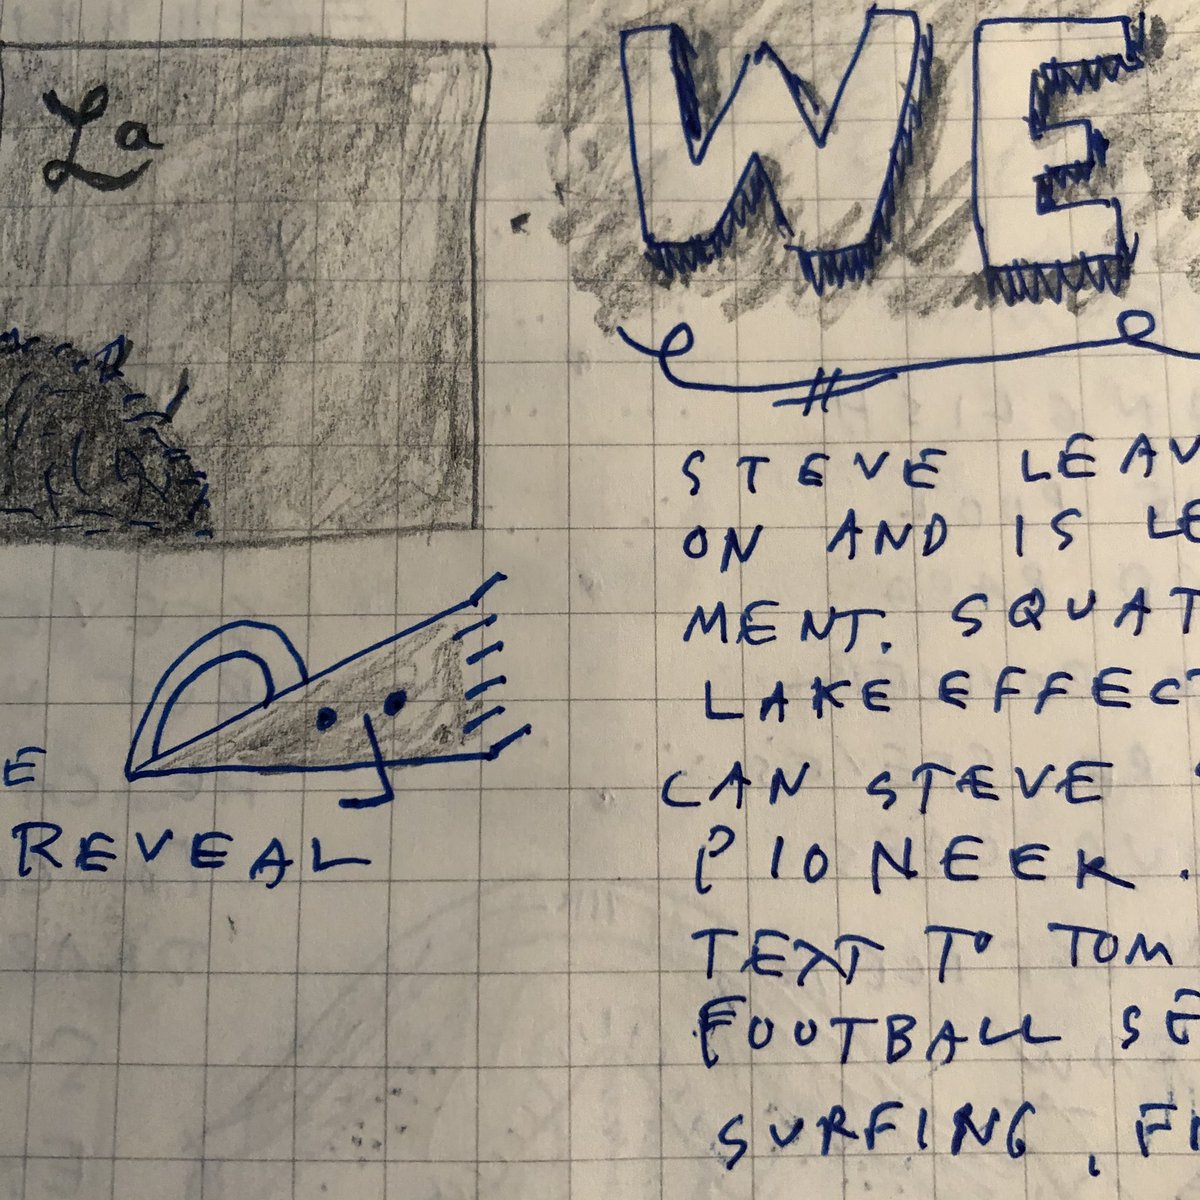 La
E
REVEAL
WE
STEVE LEAV
ON AND IS LE
MENT. SQUAT
LAKE EFFECT
CAN STEVE
PIONEER.
TEXT TO TOM
FOOTBALL SE
SURFING, FI